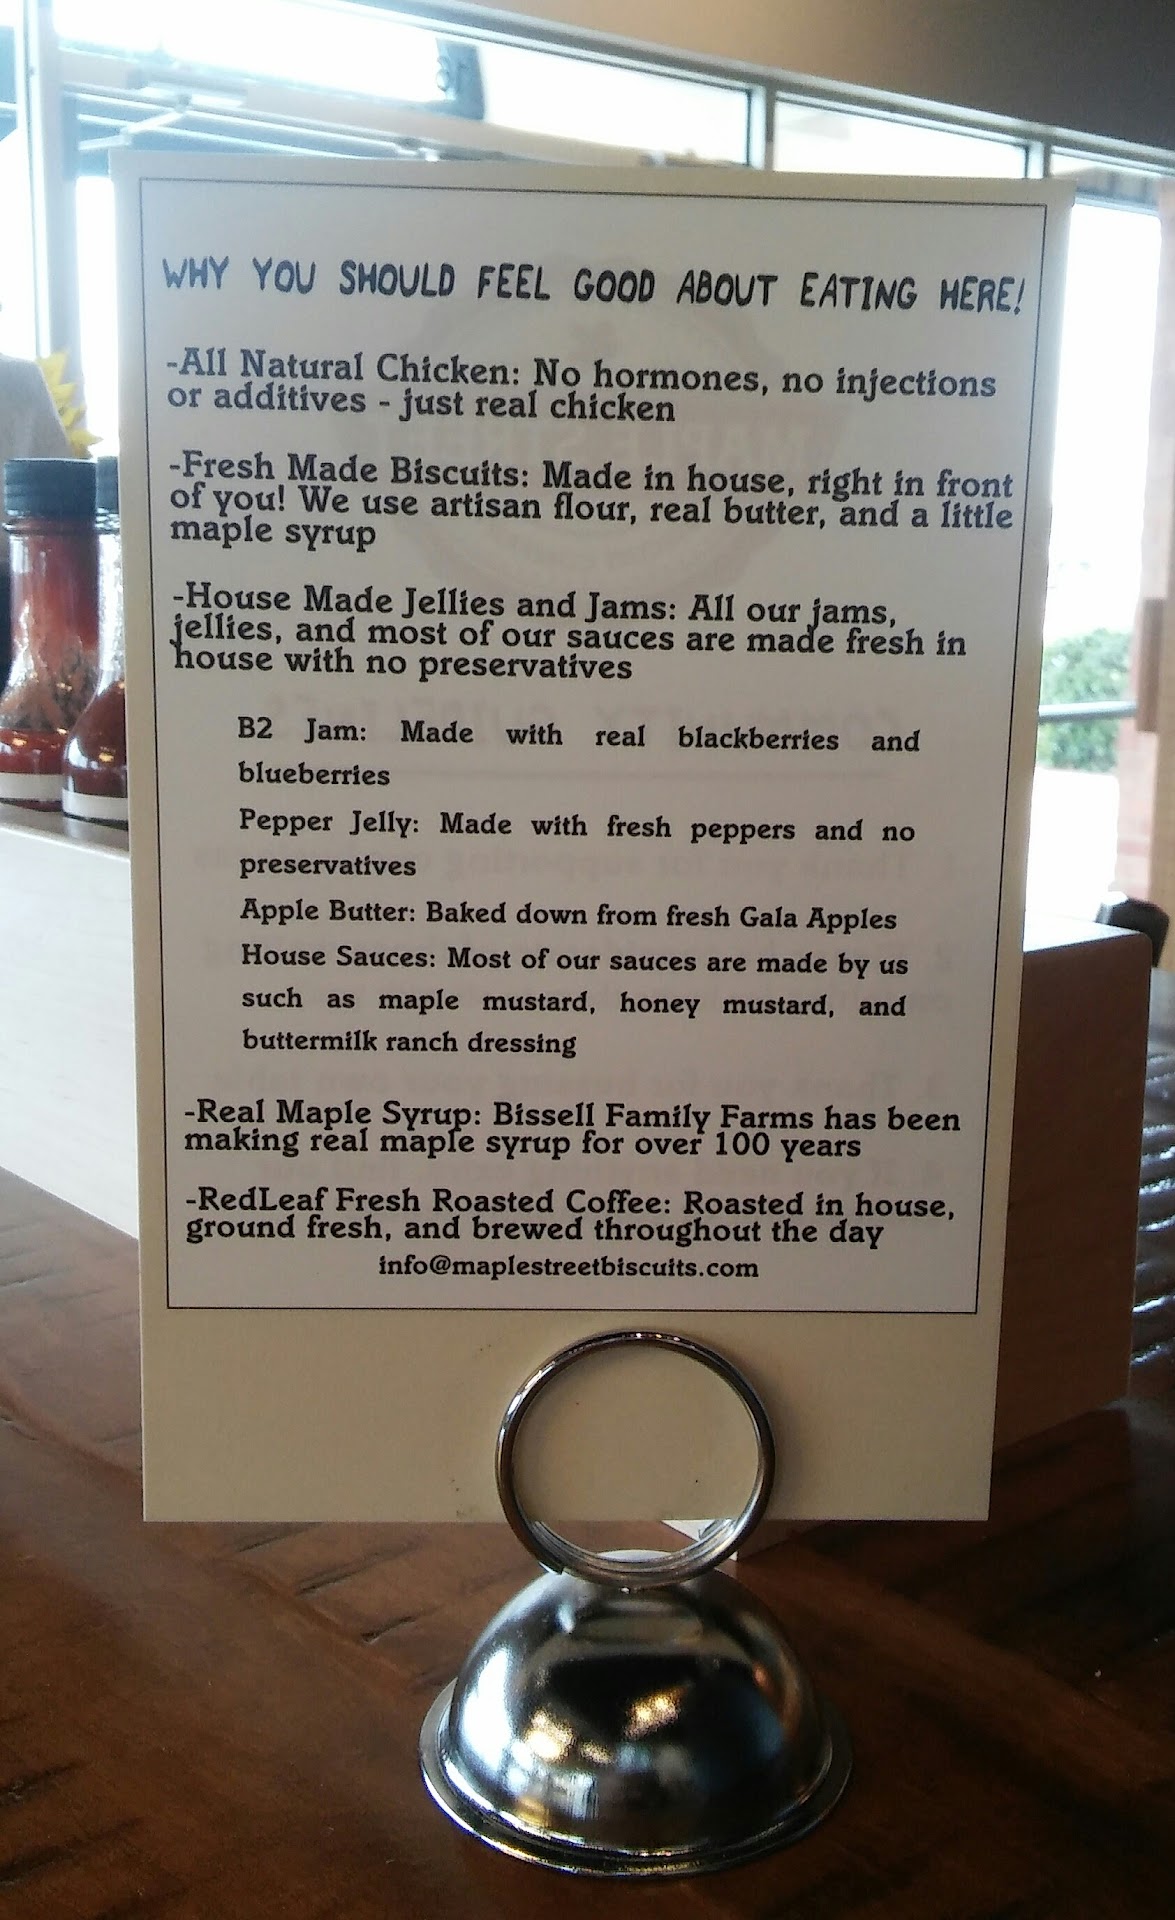 WHY YOU SHOULD FEEL GOOD ABOUT EATING HERE!
-All Natural Chicken: No hormones, no injections
or additives - just real chicken
-Fresh Made Biscuits: Made in house, right in front
of you! We use artisan flour, real butter, and a little
maple syrup
-House Made Jellies and Jams: All our jams,
jellies, and most of our sauces are made fresh in
house with no preservatives
B2 Jam: Made with real blackberries and
blueberries
Pepper Jelly: Made with fresh peppers and no
preservatives
Apple Butter: Baked down from fresh Gala Apples
House Sauces: Most of our sauces are made by us
such as maple mustard, honey mustard, and
buttermilk ranch dressing
-Real Maple Syrup: Bissell Family Farms has been
making real maple syrup for over 100 years
-RedLeaf Fresh Roasted Coffee: Roasted in house,
ground fresh, and brewed throughout the day
info@maplestreetbiscuits.com